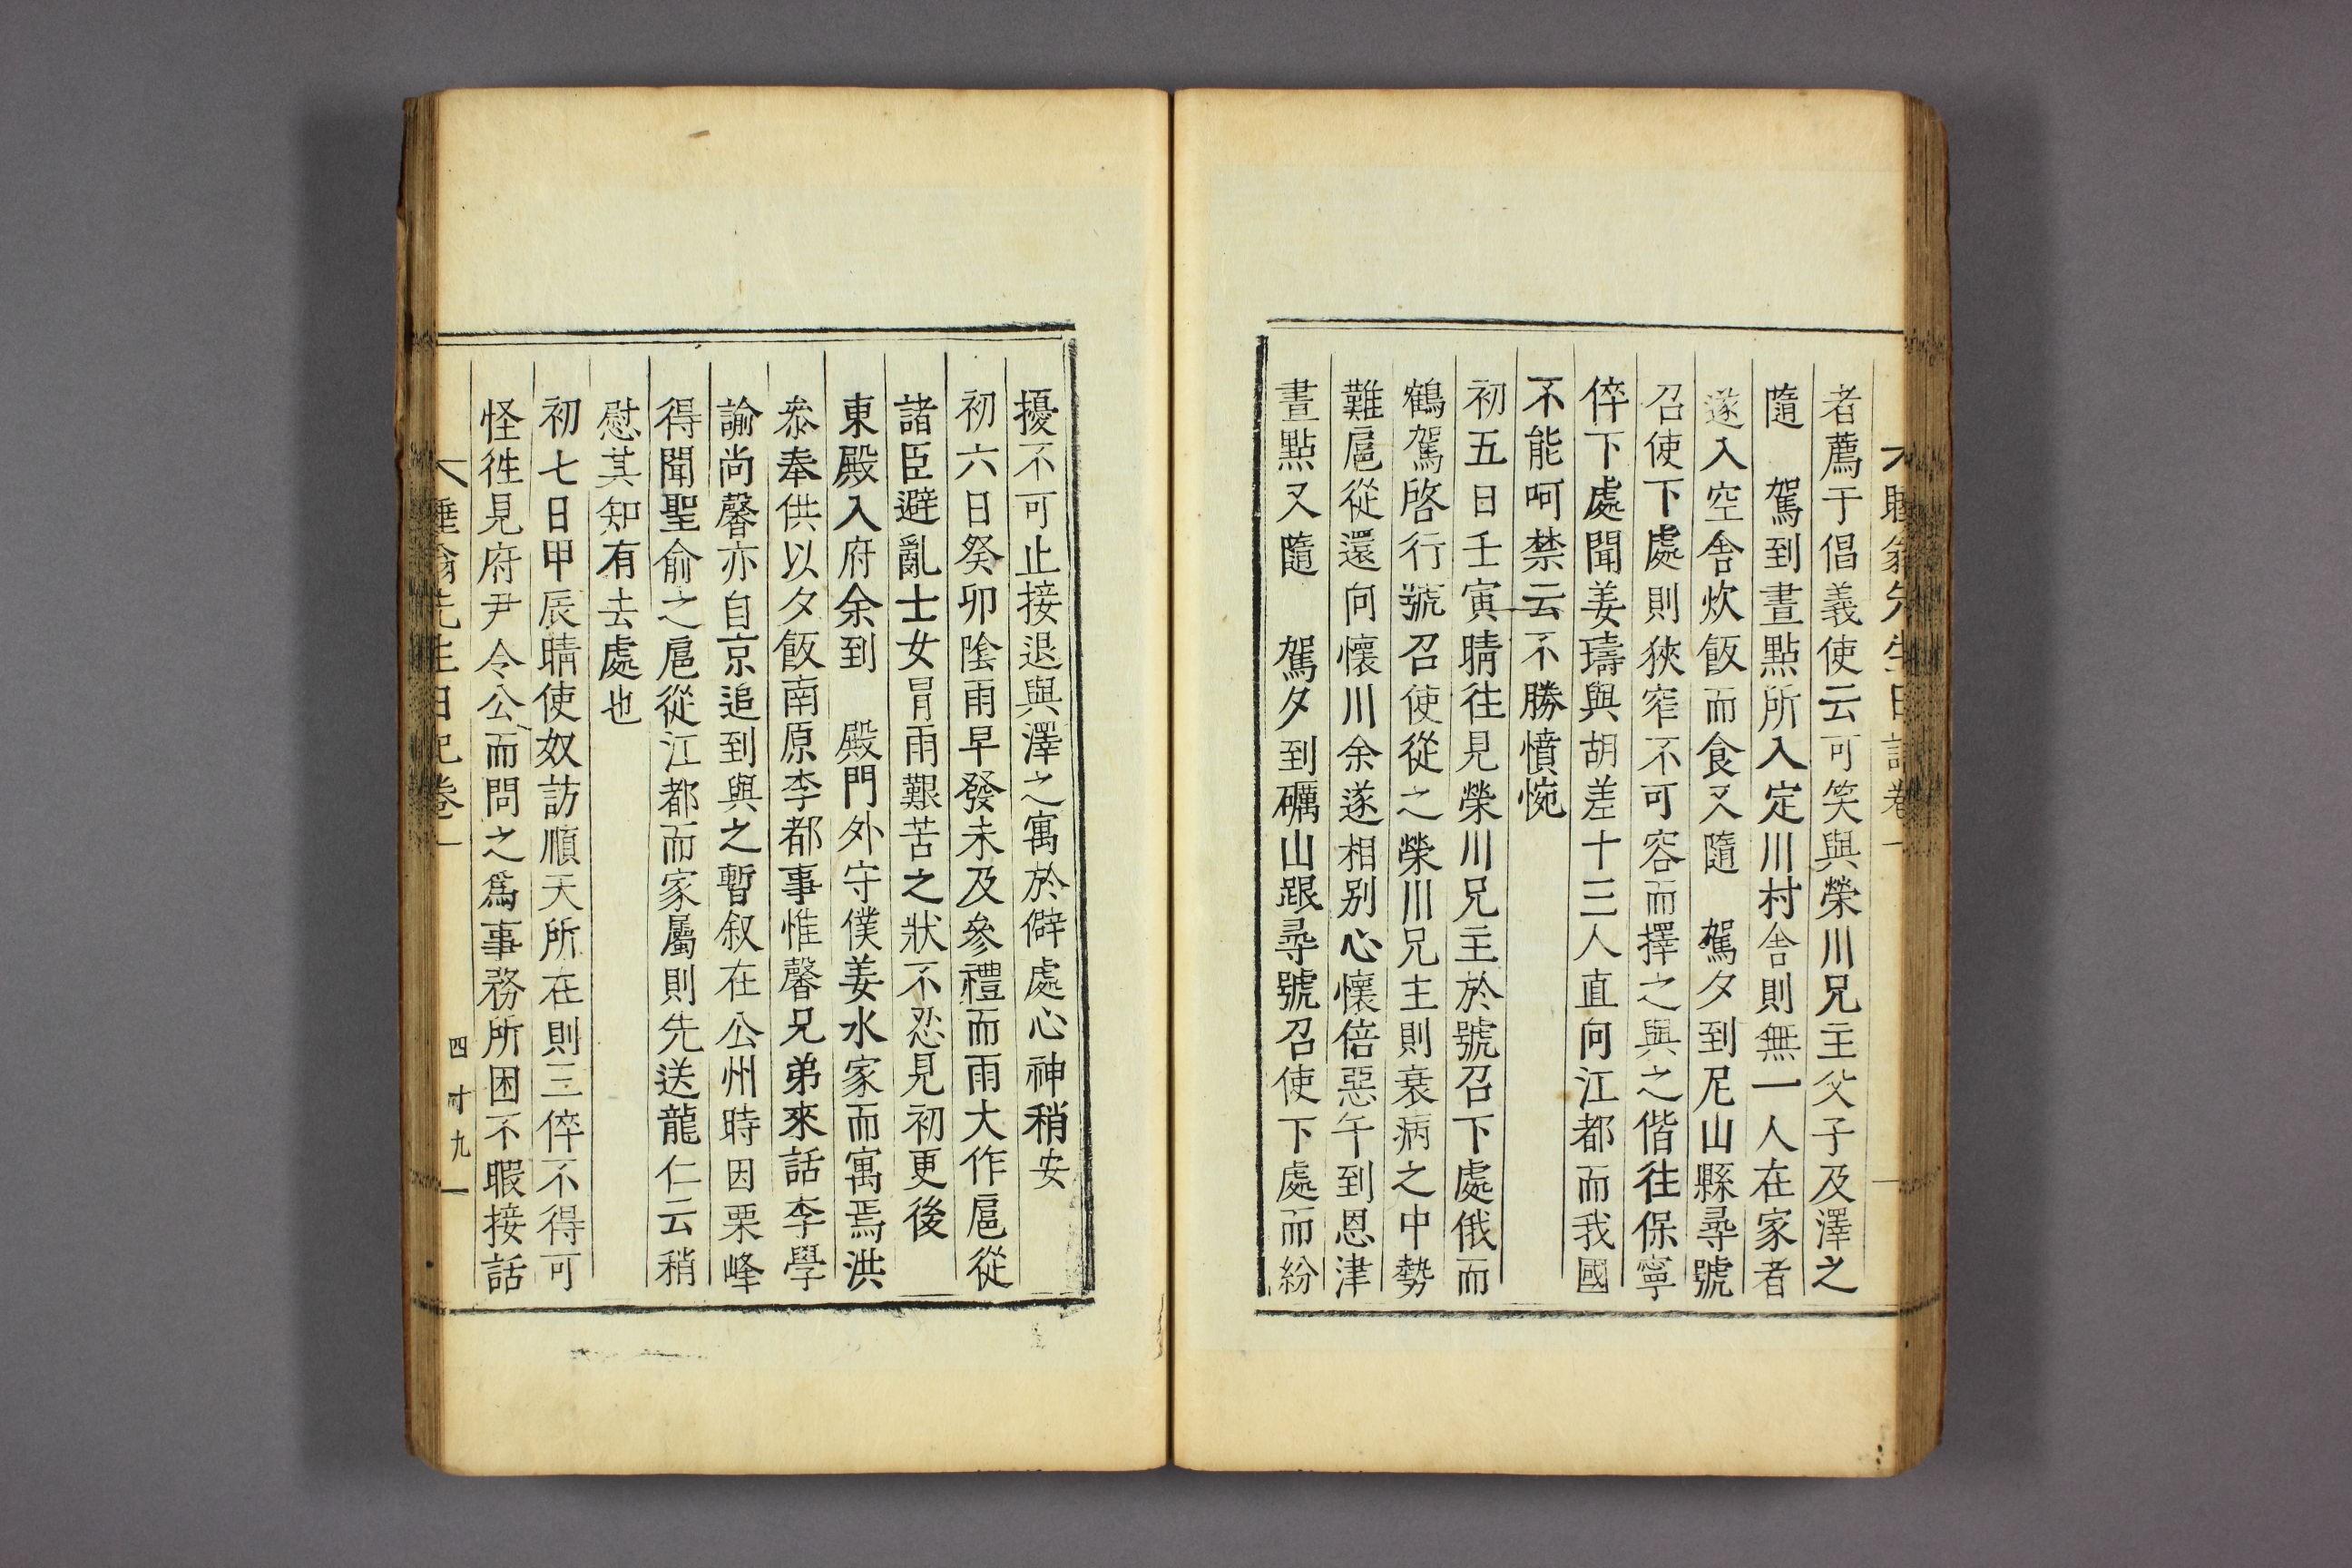 者薦于倡義使云可笑與榮川兄主父子及澤之
隨　駕到晝點所入定川村舍則無一人在家者
遂入空舍炊飯而食又隨　駕夕到尼山縣尋號
召使下處則狹窄不可容而擇之與之偕往保寧
倅下處聞姜璹與胡差十三人直向江都而我國
不能呵禁云不勝憤惋
初五日壬寅晴往見榮川兄主於號召下處俄而
鶴駕啓行號召使從之榮川兄主則衰病之中勢
難扈從還向懷川余遂相別心懷倍惡午到恩津
晝點又隨　駕夕到礪山跟尋號召使下處而紛
擾不可止接退與澤之寓於僻處心神稍安
初六日癸卯陰雨早發未及參禮而雨大作扈從
諸臣避亂士女冒雨艱苦之狀不忍見初更後
東殿入府余到　殿門外守僕姜水家而寓焉洪
叅奉供以夕飯南原李都事惟馨兄弟來話李學
諭尙馨亦自京追到與之暫叙在公州時因栗峰
得聞聖俞之扈從江都而家屬則先送龍仁云稍
慰其知有去處也
初七日甲辰晴使奴訪順天所在則三倅不得可
怪徃見府尹令公而問之爲事務所困不暇接話
先生日記卷一　四十九